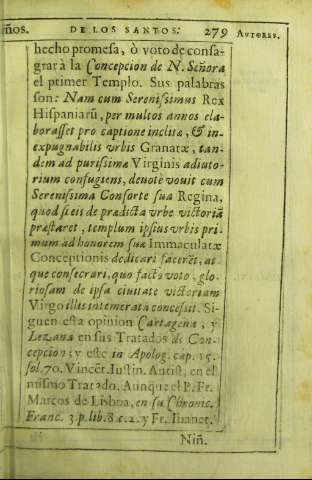 ños. DE LOS SANTOS. 279 AUTORES.
hecho promesa, ò voto de consa-
grar à la Concepcion de N. Señora
el primer Templo. Sus palabras
son: Nam cum Serenissimus Rex
Hispaniarũ, per multos annos ela-
borasset pro captione inclitæ, & in-
expugnabilis vrbis Granatæ, tan-
dem ad purissimæ Virginis adiuto-
rium confugiens, deuotè vouit cum
Serenissima Consorte sua Regina,
quod si eis de prædicta vrbe victoriã
præstaret, templum ipsius vrbis pri-
mum ad honorem suæ Immaculatæ
Conceptionis dedicari faceret, at-
que consecrari, quo facto voto, glo-
riosam de ipsa ciuitate victoriam
Virgo illis intemerata concessit. Si-
guen esta opinion Cartagena, y
Lezana en sus Tratados de Con-
cepcion; y este in Apolog. cap. 15.
fol. 70. Vincẽt. Iustin. Antist, en el
mismo Tratado, Aunque el P. Fr.
Marcos de Lisboa, en su Chronic.
Franc. 3. p. lib. 8. c. 2. y Fr. Ibanet.
Niñ.